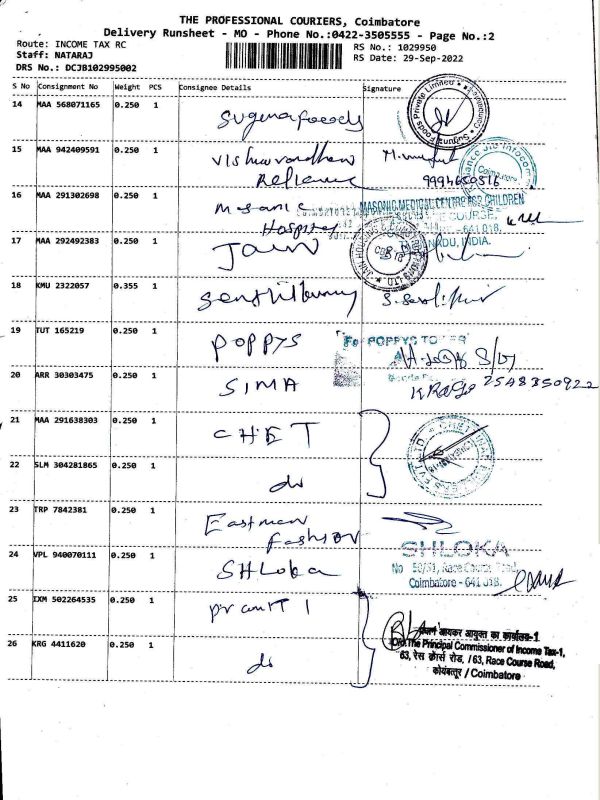 THE PROFESSIONAL COURIERS, Coimbatore
Delivery Runsheet - MO - Phone No.:0422-3505555 - Page No.:2
Route: INCOME TAX RC
Staff: NATARAJ
DRS No.: DCJB102995002
RS No.: 1029950
RS Date: 29-Sep-2022
S No Consignment No Weight PCS Consignee Details Signature
14 MAA 568071165 0.250 1 Sugunafoods
15 MAA 942409591 0.250 1 Vishwavardhan
Reliance 9994650516
16 MAA 291302698 0.250 1 Masonic
Hospital
MASONIC MEDICAL CENTRE FOR CHILDREN
17 MAA 292492383 0.250 1 JAIN
18 KMU 2322057 0.355 1 Senthilkumar
19 TUT 165219 0.250 1 POPPYS
For POPPYS
20 ARR 30303475 0.250 1 SIMA
21 MAA 291638303 0.250 1 CHET
22 SLM 304281865 0.250 1 do
23 TRP 7842381 0.250 1 Eastman
fashion
24 VPL 940070111 0.250 1 SHLoka
SHLOKA
No 50/51, Race Course Road,
Coimbatore - 641 018.
25 IXM 502264535 0.250 1
आयकर आयुक्त का कार्यालय-1
O/o.The Principal Commissioner of Income Tax-1,
63, रेस कोर्स रोड, / 63, Race Course Road,
कोयंबत्तूर / Coimbatore
26 KRG 4411620 0.250 1 do